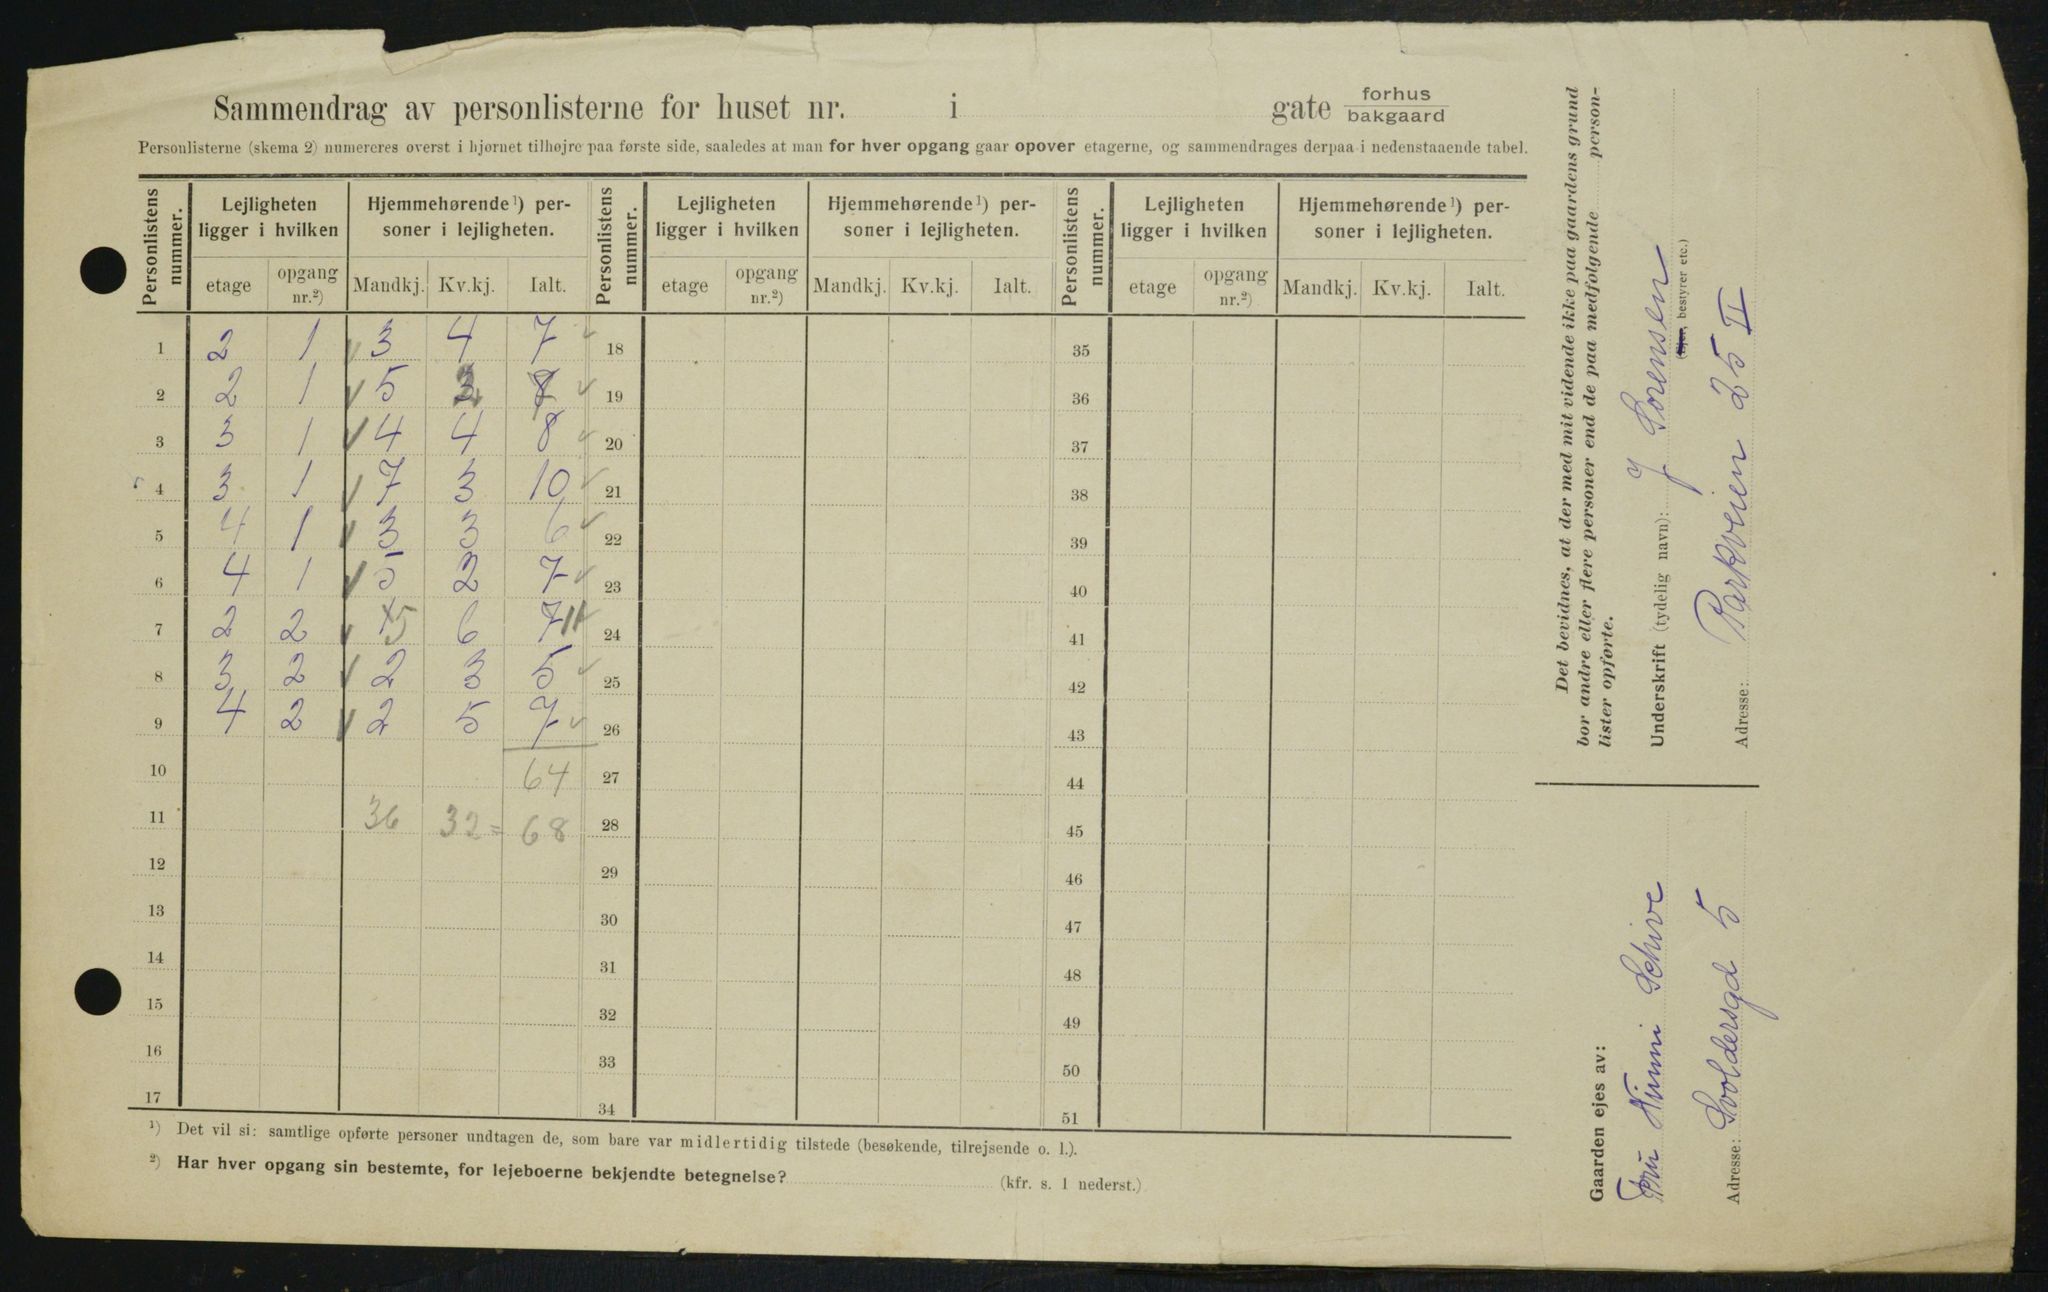 Sammendrag av personlisterne for huset nr. i gate forhus bakgaard
Personlisterne (skema 2) numereres øverst i hjørnet tilhøjre paa første side, saaledes at man for hver opgang gaar opover etagerne, og sammendrages derpaa i nedenstaaende tabel.
Personlistens nummer. Lejligheten ligger i hvilken Hjemmehørende¹) personer i lejligheten. Personlistens nummer. Lejligheten ligger i hvilken Hjemmehørende¹) personer i lejligheten. Personlistens nummer. Lejligheten ligger i hvilken Hjemmehørende¹) personer i lejligheten.
etage opgang nr.²) Mandkj. Kv.kj. Ialt. etage opgang nr.²) Mandkj. Kv.kj. Ialt. etage opgang nr.²) Mandkj. Kv.kj. Ialt.
1 2 1 3 4 7 18 35
2 2 1 5 19 36
3 3 1 4 4 8 20 37
4 3 1 7 3 10 21 38
5 4 1 3 3 6 22 39
6 4 1 5 2 7 23 40
7 2 2 5 6 7 11 24 41
8 3 2 2 3 5 25 42
9 4 2 2 5 7 26 43
10 64 27 44
11 36 32 = 68 28 45
12 29 46
13 30 47
14 31 48
15 32 49
16 33 50
17 34 51
¹) Det vil si: samtlige opførte personer undtagen de, som bare var midlertidig tilstede (besøkende, tilrejsende o. l.).
²) Har hver opgang sin bestemte, for lejeboerne bekjendte betegnelse? (kfr. s. 1 nederst.)
Det bevidnes, at der med mit vidende ikke paa gaardens grund
bor andre eller flere personer end de paa medfølgende person-
lister opførte.
Underskrift (tydelig navn): J Sorensen
(Ejer, bestyrer etc.)
Adresse: Parkveien 25 II
Gaarden ejes av:
Fru Nimmi Schive
Adresse: Svoldersgd 5